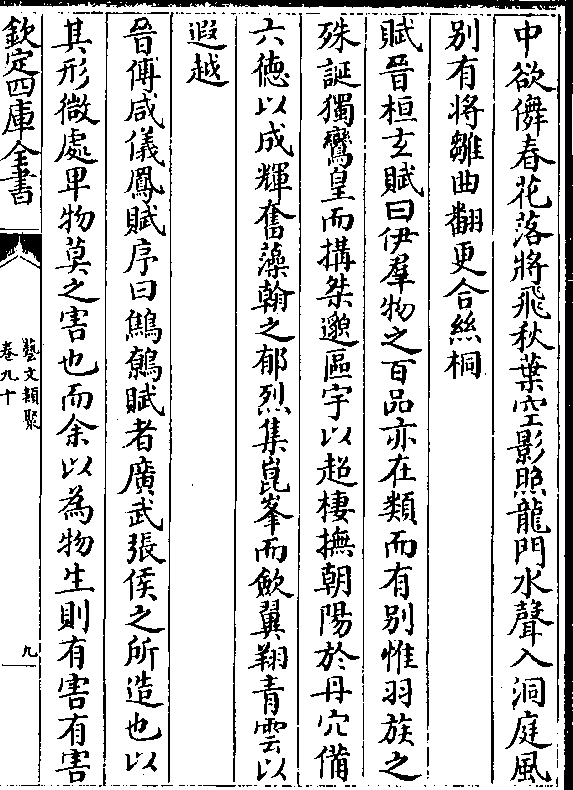 中欲儛春花落將飛秋葉空影照龍門水聲入洞庭風
别有將雛曲翻更合絲桐
賦晉桓玄賦曰伊羣物之百品亦在類而有别惟羽族之
殊誕獨鸞皇而搆桀邈區宇以超棲撫朝陽於丹穴備
六德以成輝奮藻翰之郁烈集崑峯而歛翼翔青雲以
遐越
晉傅咸儀鳳賦序曰鷦鷯賦者廣武張侯之所造也以
其形微處卑物莫之害也而余以為物生則有害有害
欽定四庫全書
藝文類聚
卷九十
九